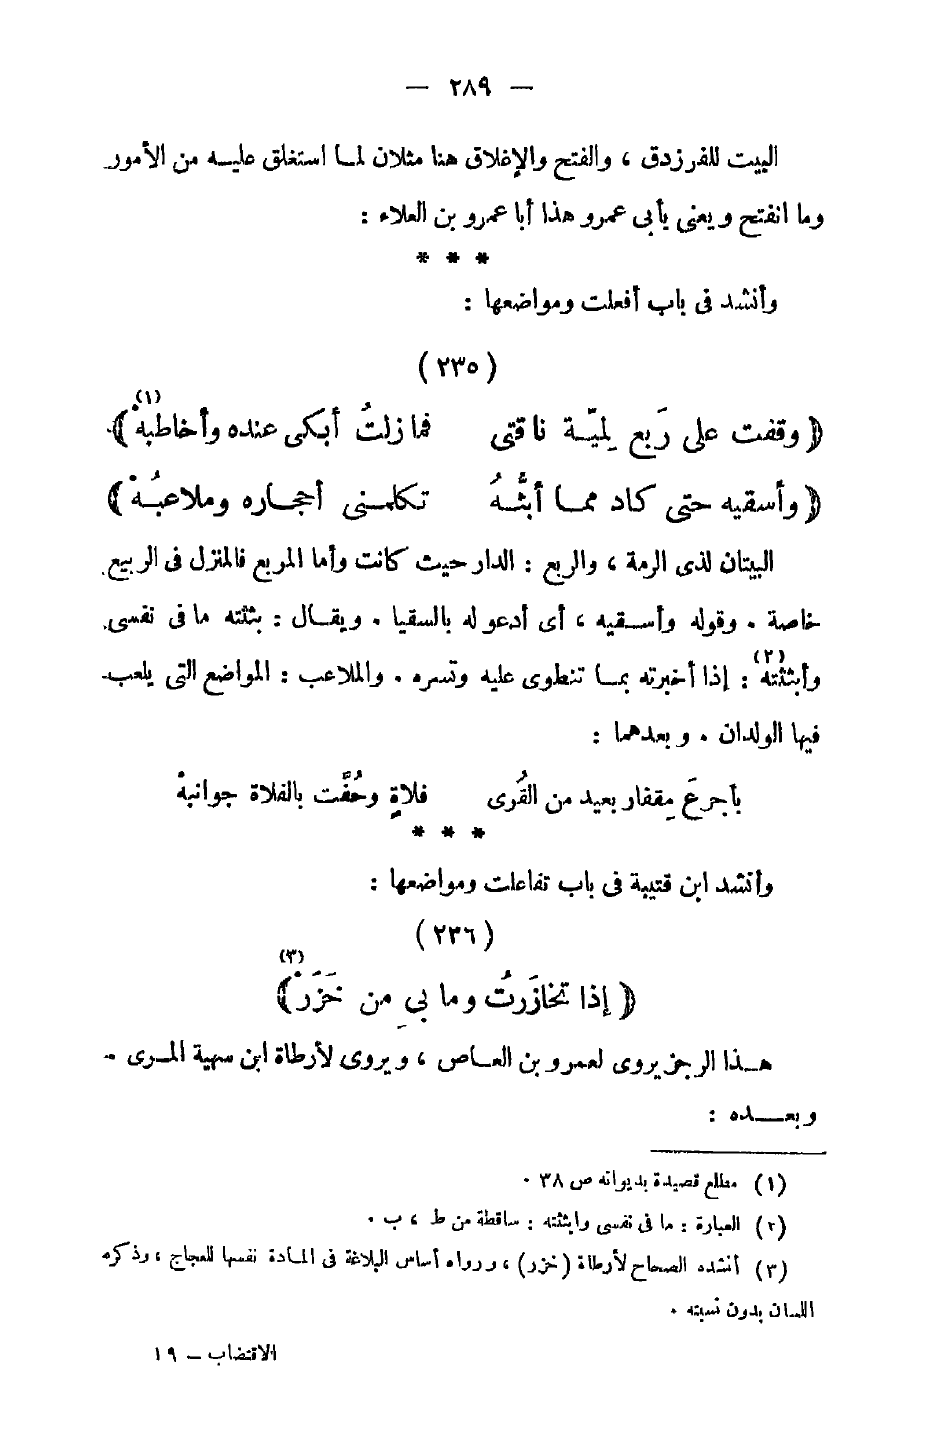 — ٢٨٩ —
البيت للفرزدق ، والفتح والإغلاق هنا مثلان لمـا استغلق عليـه من الأمور
وما انفتح ويعنى بأبى عمرو هذا أبا عمرو بن العلاء :
* * *
وأنشد فى باب أفعلت ومواضعها :
( ٢٣٥ )
﴿ وقفت على رَبع لِميّـة ناقتى فما زلتُ أبكى عنده وأخاطبهْ ﴾(١)
﴿ وأسقيه حتى كاد ممـا أبثُّـهُ تكلمـنى أحجـاره وملاعبُـهْ ﴾
البيتان لذى الرمة ، والربع : الدار حيث كانت وأما المربع فالمنزل فى الربيع
خاصة . وقوله وأسـقيه ، أى أدعو له بالسقيا . ويقـال : بثثته ما فى نفسى
وأبثثته(٢) : إذا أخبرته بمـا تنطوى عليه وتسره . والملاعب : المواضع التى يلعب
فيها الولدان . وبعدهما :
بأجرعَ مِقفار بعيد من القُرى فلاةٍ وحُفَّت بالفلاة جوانبهْ
* * *
وأنشد ابن قتيبة فى باب تفاعلت ومواضعها :
( ٢٣٦ )
﴿ إذا تخازَرتُ وما بىِ من خَزَرْ ﴾(٣)
هـذا الرجز يروى لعمرو بن العـاص ، ويروى لأرطاة ابن سهية المـرى .
وبعــده :
(١) مطلع قصيدة بديوانه ص ٣٨ .
(٢) العبارة : ما فى نفسى وابثثته : ساقطة من ط ، ب .
(٣) أنشده الصحاح لأرطاة (خزر) ، ورواه أساس البلاغة فى المـادة نفسها للعجاج ، وذكره
اللسان بدون نسبته .
الاقتضاب — ١٩